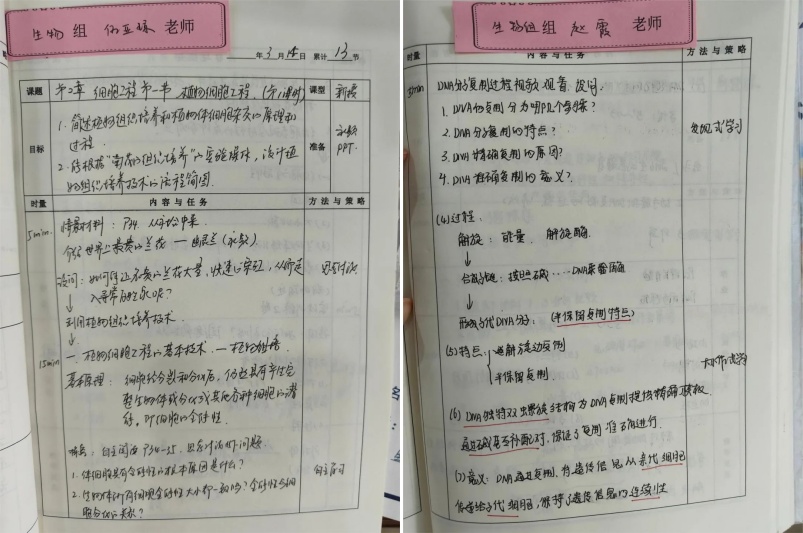 生物 组 老师
年 3 月 14 日 累计 13 节
课题 第2章 细胞工程 第一节 植物细胞工程 (第1课时) 课型 新授
1. 简述植物组织培养和植物体细胞杂交的原理和
目标 过程. 准备 PPT.
2. 能根据"菊花的组织培养"的实验操作, 设计植
物组织培养技术的流程简图.
时量 内容与任务 方法与策略
5min. 情景材料: P34. 从社会中来.
介绍世界上最贵的兰花 — 兰(
设问: 如何让名贵的兰花大量, 快速 , 从而走 思考讨论
入寻常百姓家呢?
↓
利用植物组织培养技术.
↓
15min 一. 植物细胞工程的基本技术.
基本原理: 细胞经分裂和分化后, 仍然具有产生完
整生物体或分化成其他各种细胞的潜
能. 即细胞的全能性.
自主阅读 P34-35. 思考讨论 问题
1. 体细胞具有全能性的根本原因是什么? 自主学习
2. 生物体所有细胞全能性大小都一样吗? 全能性与细
胞分化的关系?
生物组 组 赵霞 老师
时量 内容与任务 方法与策略
DNA分子复制过程视频 观看, 设问:
1. DNA的复制分为哪几个步骤?
2. DNA分子复制的特点? 发现式学习
3. DNA精确复制的原因?
4. DNA准确复制的意义?
(4) 过程.
解旋: 能量. 解旋酶.
↓
合成子链: 按照碱 ···· DNA聚合酶
↓
形成子代DNA分: (半保留复制特点)
(5) 特点: 边解旋边复制
半保留复制.
(6) DNA独特双螺旋结构为DNA复制提供精确模板.
通过碱基互补配对, 保证了复制准确进行.
(7) 意义: DNA通过复制, 将遗传信息从亲代细胞
传递给子代细胞, 保持了遗传信息的连续性